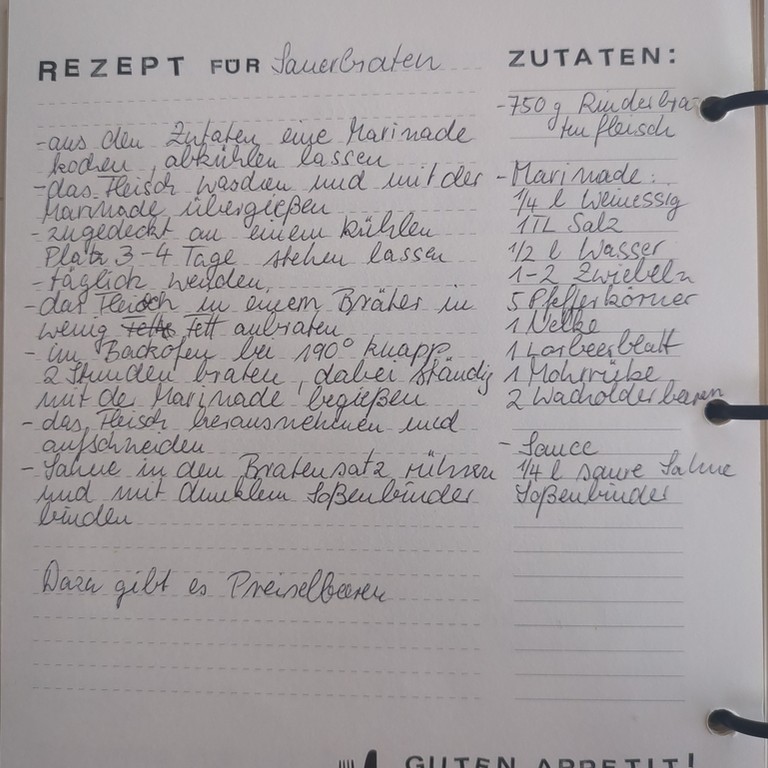 REZEPT FÜR Sauerbraten
- aus den Zutaten eine Marinade
kochen, abkühlen lassen
- das Fleisch waschen und mit der
Marinade übergießen
- zugedeckt an einem kühlen
Platz 3-4 Tage stehen lassen
- täglich wenden
- das Fleisch in einem Bräter in
wenig Fett anbraten
- im Backofen bei 190° knapp
2 Stunden braten, dabei ständig
mit der Marinade begießen
- das Fleisch herausnehmen und
aufschneiden
- Sahne in den Bratensatz rühren
und mit dunklem Soßenbinder
binden
Dazu gibt es Preiselbeeren
ZUTATEN:
- 750 g Rinderbra-
tenfleisch
- Marinade:
1/4 l Weinessig
1 TL Salz
1/2 l Wasser
1-2 Zwiebeln
5 Pfefferkörner
1 Nelke
1 Lorbeerblatt
1 Mohrrübe
2 Wacholderbeeren
- Sauce
1/4 l saure Sahne
Soßenbinder
GUTEN APPETIT!